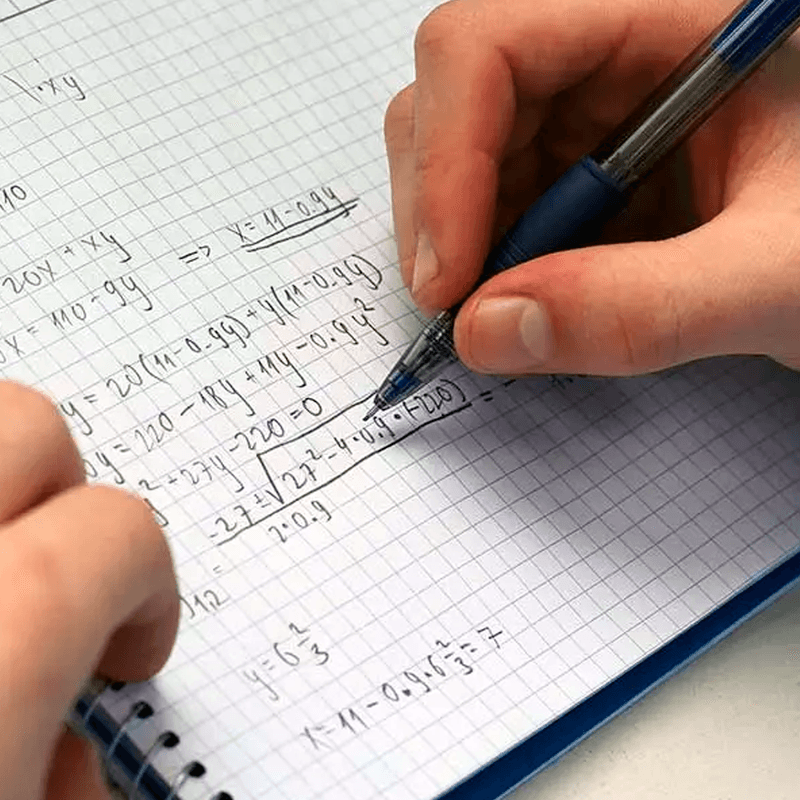 \·xy
110
20x + xy
x = 110 - 9y => x = 11 - 0.9y
y = 20(11 - 0.9y) + y(11 - 0.9y)
y = 220 - 18y + 11y - 0.9y²
² + 27y - 220 = 0
-27 ± √27² - 4·0.9·(-220) =
2·0.9
1,2 =
y = 6 2/3
x = 11 - 0.9·6 2/3 = 7